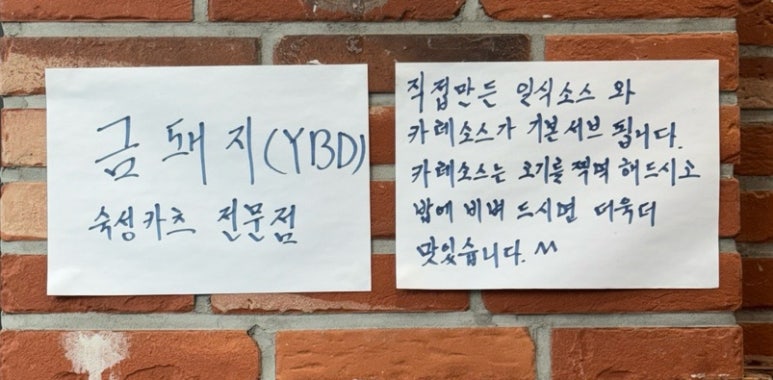 금돼지(YBD)
숙성카츠 전문점
직접만든 일식소스 와
카레소스가 기본서브 됩니다.
카레소스는 고기를 찍먹 해드시고
밥에 비벼 드시면 더욱더
맛있습니다. ^^